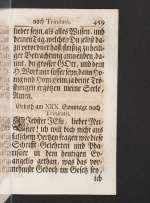 nach Trinitatis. 459
lieber seyn, als alles Wissen, und
den am Tag, welchen Du selbst da-
zu verordnet hast, fleissig zu heili-
ger Betrachtung anwenden, da-
mit, o grosser GOtt, und Dein
H. Wort mir süsser seyn, dann Ho-
nig und Honigseim, ja deine Trö-
stungen ergötzen meine Seele,
Amen.
Gebeth am XIX. Sonntage nach
Trinitatis.
Liebster JEsu, lieber Mei-
ster! ich will dich nicht aus
falschem Hertzen fragen wie diese
Schrifft-Gelehrten und Pha-
risäer in dem heutigen Ev-
angelio gethan, was das vor-
nehmste Geboth im Gesetz sey
ich